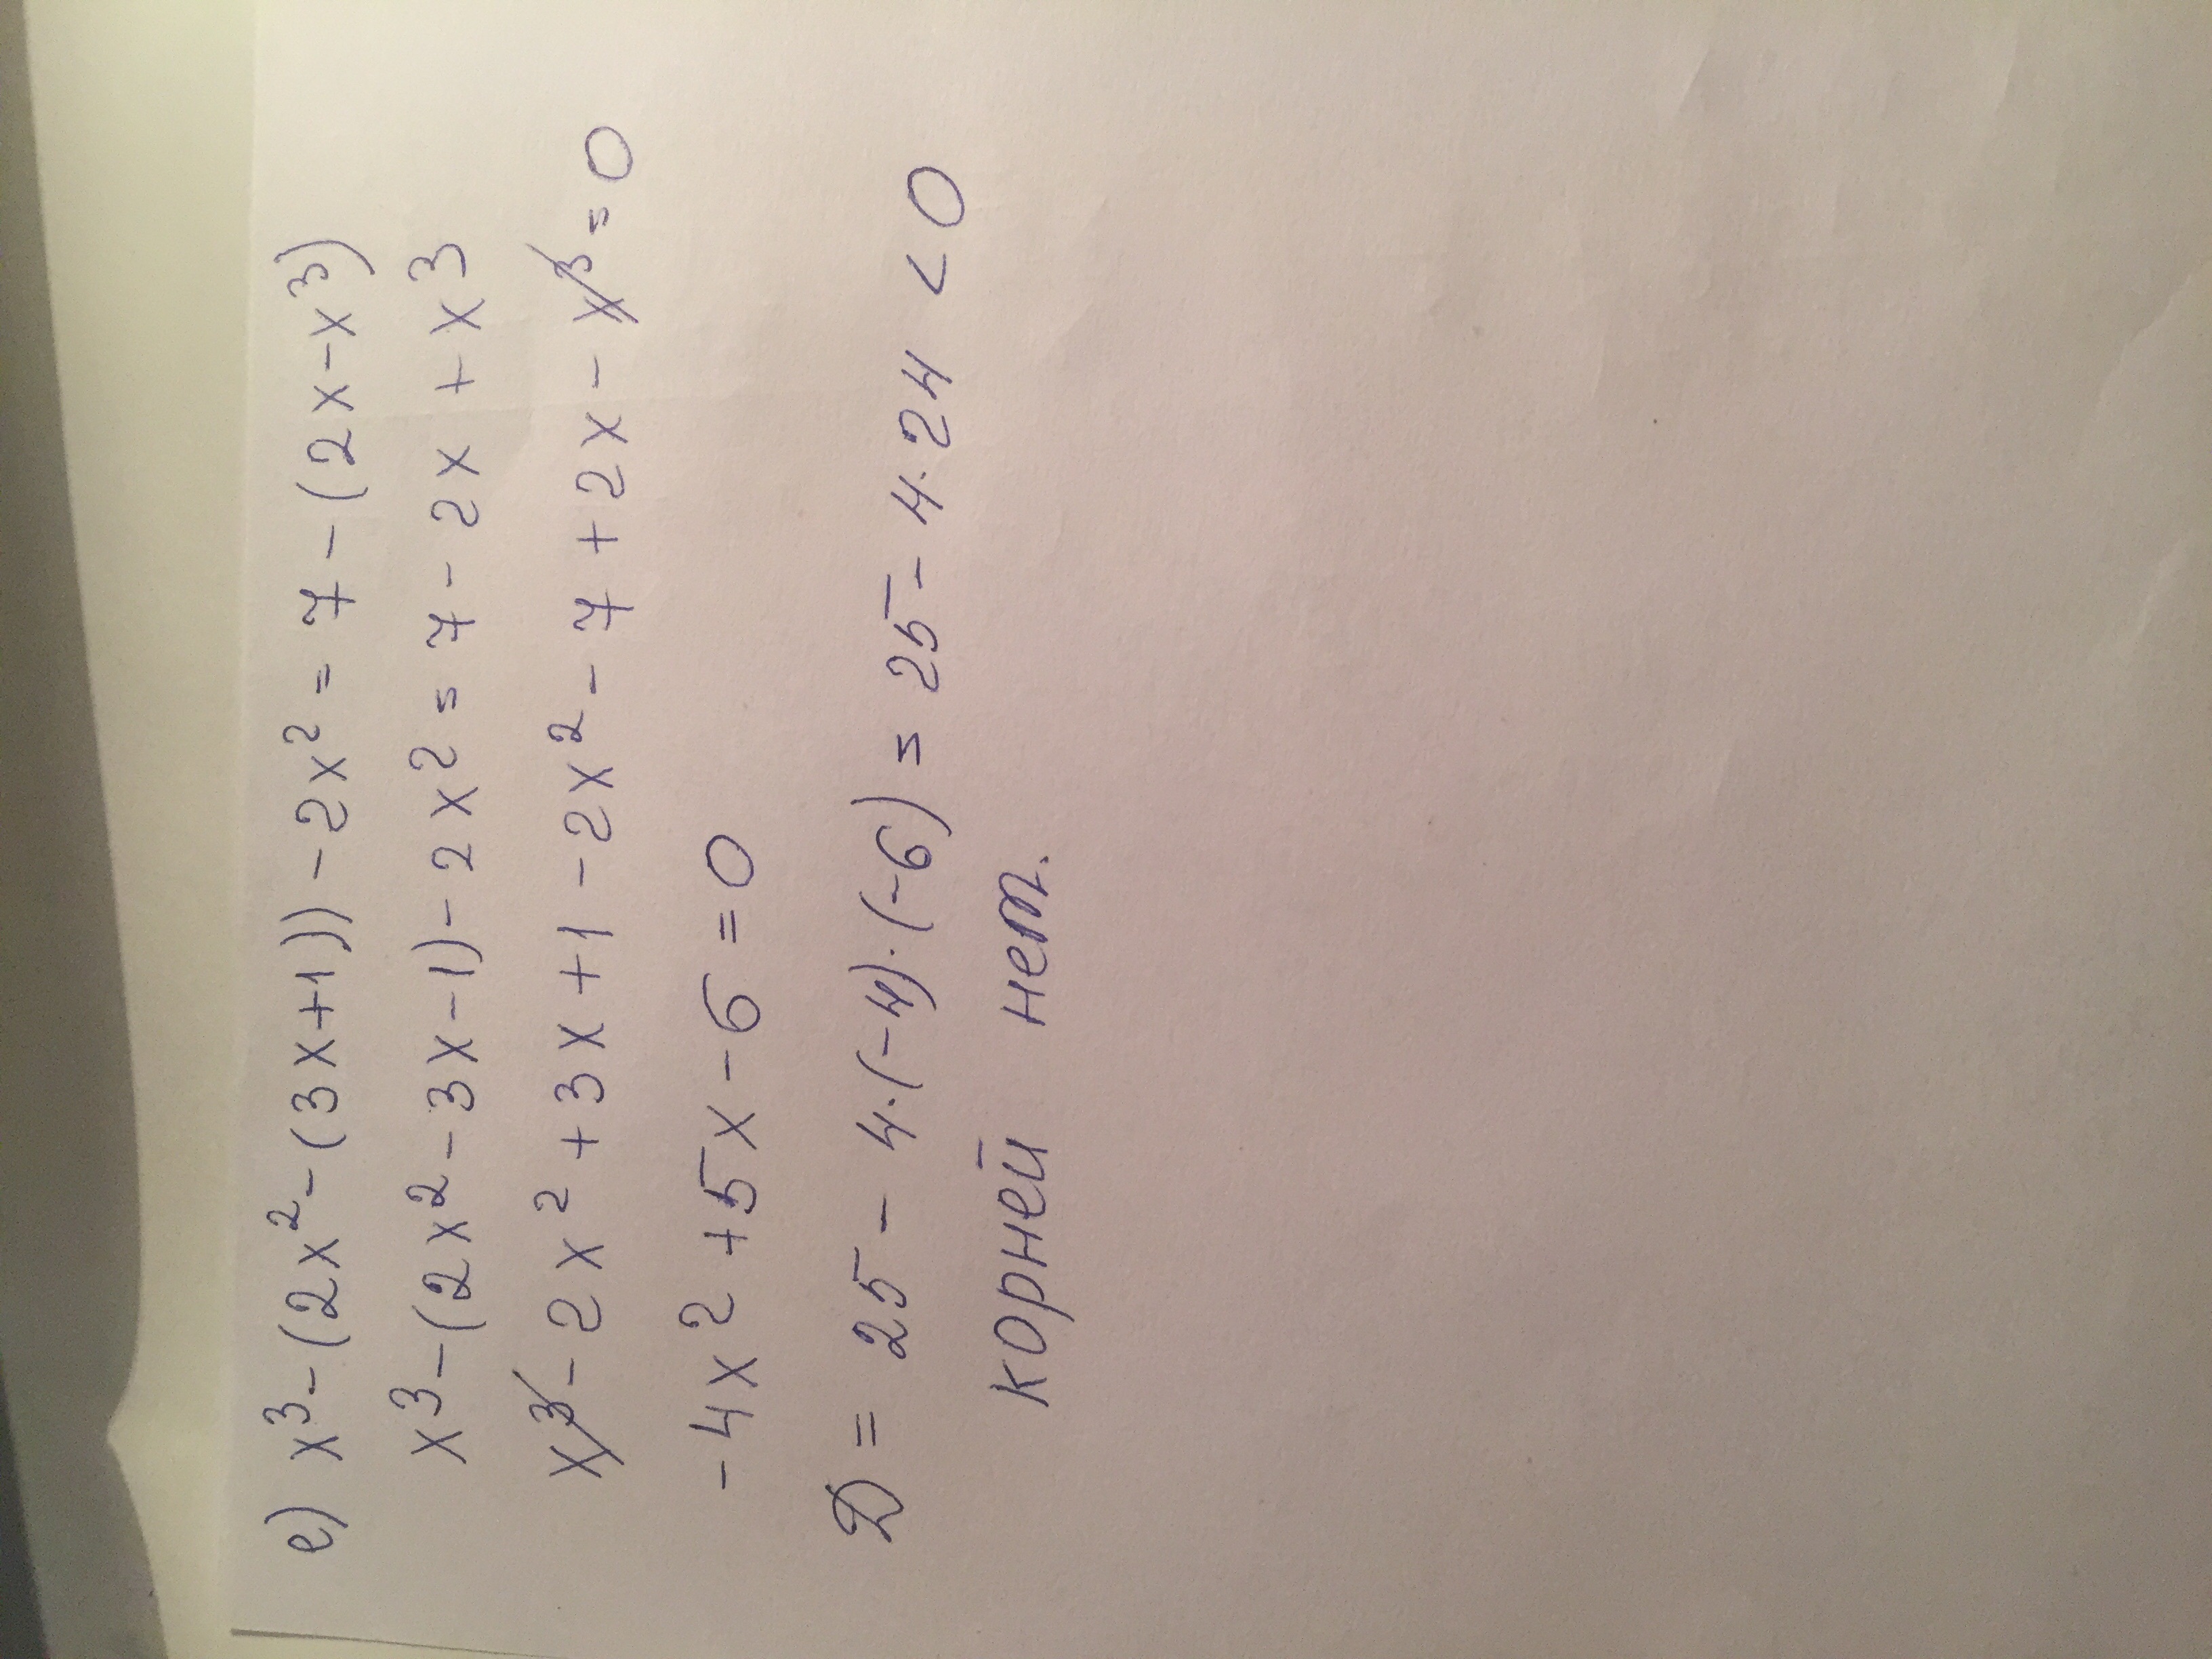 е) x³-(2x²-(3x+1))-2x²=7-(2x-x³)
x³-(2x²-3x-1)-2x²=7-2x+x³
x³-2x²+3x+1-2x²-7+2x-x³=0
-4x²+5x-6=0
D=25-4·(-4)·(-6)=25-4·24<0
корней нет.